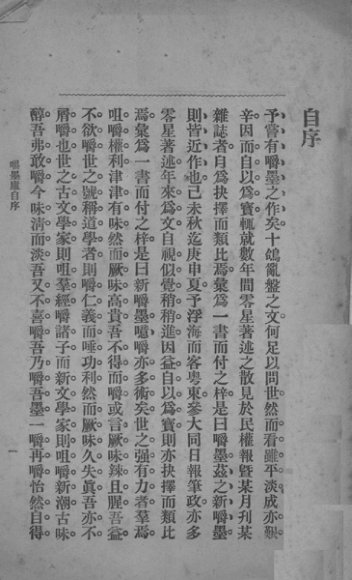 自序
予嘗有嚼墨之作矣十鴿亂盤之文何足以問世然而看雖平淡成亦艱
辛因而自以爲寶輒就數年間零星著述之散見於民權報暨某月刊某
雜誌者自爲抉擇而類比焉彙爲一書而付之梓是曰嚼墨茲之新嚼墨
則皆近作也己未秋迄庚申夏予浮海而客粵東參大同日報筆政亦多
零星著述年來爲文自視似覺稍稍進因益自以爲寶則亦抉擇而類比
焉彙爲一書而付之梓是曰新嚼墨噫嚼亦多術矣世之强有力者羣焉
咀嚼權利津津有味然而厥味高貴吾不得而嚼或言厥味辣且腥吾益
不欲嚼世之號稱道學者則嚼仁義而唾功利然而厥味久失眞吾亦不
屑嚼也世之古文學家則咀羣經嚼諸子而新文學家則咀嚼新潮古味
醇吾弗敢嚼今味清而淡吾又不喜嚼吾乃嚼吾墨一嚼再嚼怡然自得
嚼墨廬自序
一